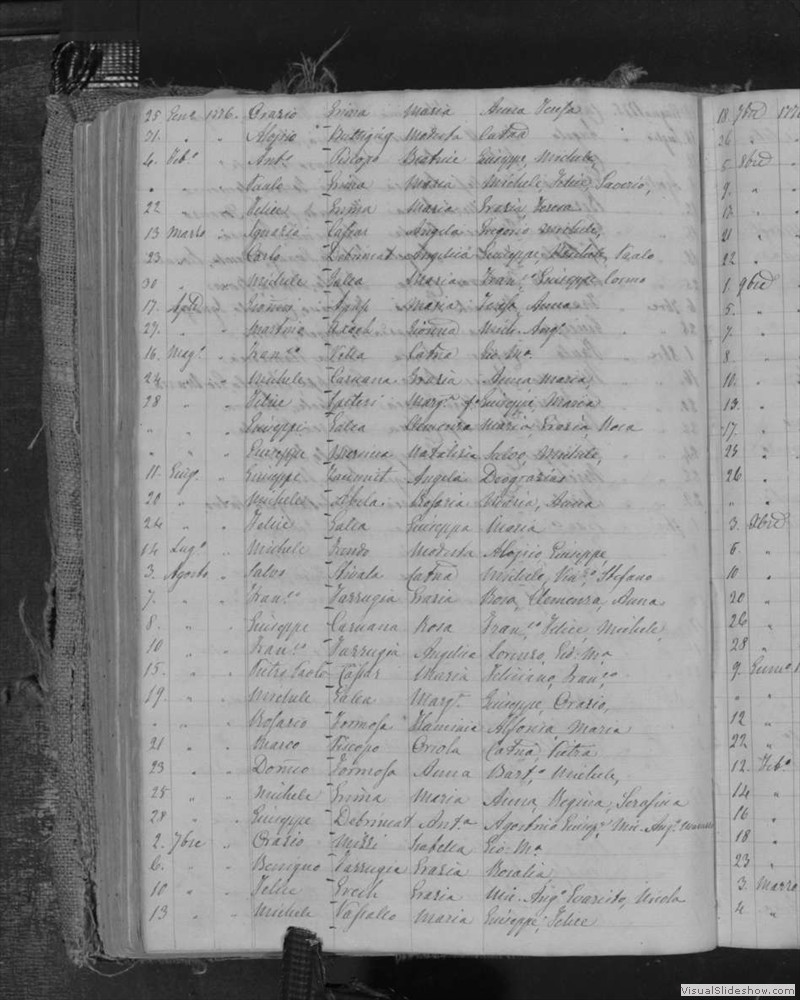 25 Genº 1776. Orazio Grima Maria Anna Teresa
21 " " Aloisio Buttigieg Modesta Catna
4. Febº " Antº Piscopo Beatrice Giuseppe, Michele,
" " " Paolo Grima Maria Michele, Felice, Saverio,
22 " " Felice Grima Maria Grazia, Teresa
13 Marzo " Ignazio Caſsar Angela Gregorio Michele,
23 " " Carlo Debrincat Angelica Giuseppe, Michele, Paolo
30 " " Michele Galea Maria Franco Giuseppe Cosmo
17. Aple " Maria Teresa Anna
27. " " Martino Gionna Mich. Angº
16. Magº " Franco Vella Catna Gio Ma
24 " " Michele Caruana Grazia Anna Maria
28 " " Felice Spiteri Margta Giuseppe, Maria
" " " Giuseppe Galea Clemenza Mario, Grazia, Rosa
" " " Giuseppe Messina Natalizia Salvo, Michele,
11. Giugº " Giuseppe Zammit Angela Deograzias
20 " " Michele Abela Rosaria Anna
24 " " Felice Galea Giuseppa Maria
14 Lugº " Michele Modesta Aloisio Giuseppe
3. Agosto " Salvo Catna Michele, Vincº Stefano
7. " " Franco Farrugia Grazia Rosa, Clemenza, Anna
8. " " Giuseppe Caruana Rosa Franco, Felice, Michele,
10 " " Franco Farrugia Angelica Lorenzo, Gio. Ma
15. " " Pietro Paolo Caſsar Maria Feliciano, Franco
19. " " Michele Galea Margta Giuseppe, Orazio,
" " " Rosario Formosa Flaminia Alfonsa, Maria
21 " " Marco Piscopo Catna, Pietra
23 " " Domco Formosa Anna Bartº, Michele,
25 " " Michele Grima Maria Anna, Regina, Serafina
28 " " Giuseppe Debrincat Anta Agostino Giuspe, Mic. Angº
2. 7bre " Orazio Mizzi Isabella Gio Ma
6. " " Benigno Farrugia Grazia Rosalia
10 " " Felice Grech Grazia Mic. Angº Evaristo, Nicola
13 " " Michele Vaſsallo Maria Giuseppe, Felice
18. 7bre 1776
26 "
5. 8bre
9. "
17. "
21 "
22 "
1. 9bre
5. "
7. "
8 "
10. "
13. "
17. "
25 "
26 "
" "
3. Xbre
6 "
10 "
20 "
26 "
28 "
9. Genº
" "
12 "
22 "
12. Febº
14 "
16 "
18 "
23 "
3. Marzo
4 "
VisualSlideshow.com